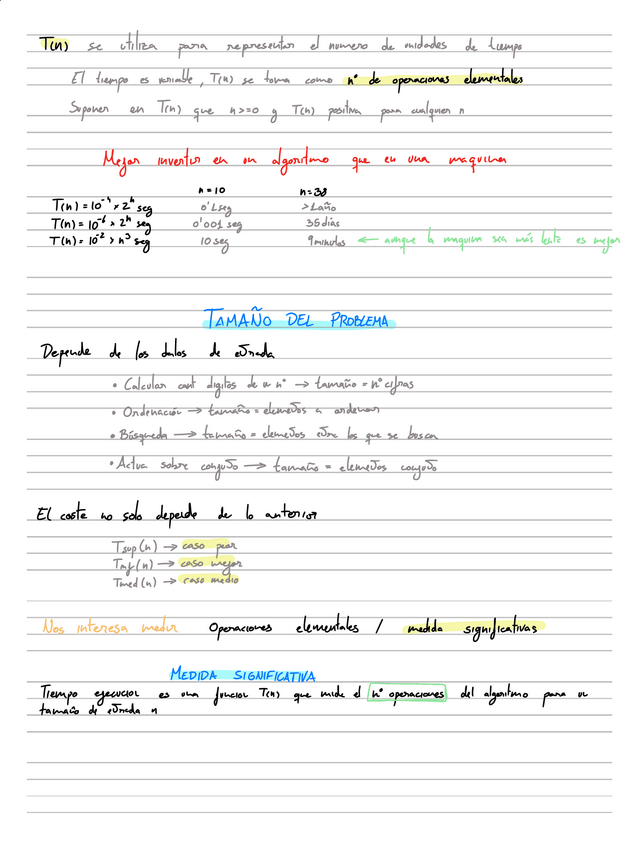 T(n) se utiliza para representar el numero de unidades de tiempo
El tiempo es variable, T(n) se toma como nº de operaciones elementales
Suponer en T(n) que n>=0 y T(n) positiva para cualquier n
Mejor invertir en un algoritmo que en una maquina
n=10 n=38
T(n) = 10⁻⁴ × 2ⁿ seg 0'1seg >1año
T(n) = 10⁻⁶ × 2ⁿ seg 0'001 seg 35 dias
T(n) = 10⁻² × n³ seg 10 seg 9 minutos ← aunque la maquina sea más lenta es mejor
TAMAÑO DEL PROBLEMA
Depende de los datos de entrada
• Calcular cant digitos de un nº → tamaño = nº cifras
• Ordenación → tamaño = elementos a ordenar
• Búsqueda → tamaño = elementos entre los que se busca
• Actua sobre conjunto → tamaño = elementos conjunto
El coste no solo depende de lo anterior
Tsup(n) → caso peor
Tinf(n) → caso mejor
Tmed(n) → caso medio
Nos interesa medir Operaciones elementales / medida significativas
MEDIDA SIGNIFICATIVA
Tiempo ejecucion es una funcion T(n) que mide el nº operaciones del algoritmo para un
tamaño de entrada n